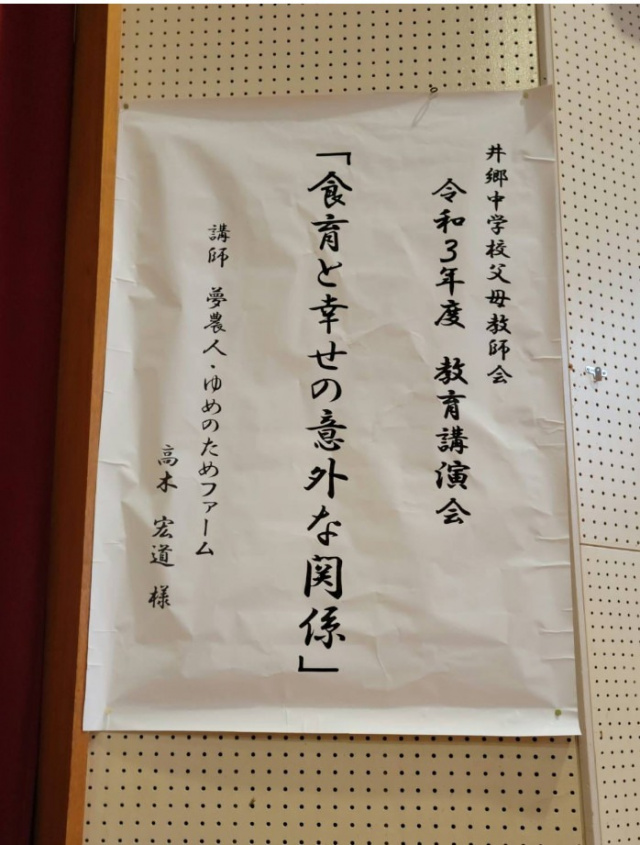 井郷中学校父母教師会
令和3年度 教育講演会
「食育と幸せの意外な関係」
講師 夢農人・ゆめのためファーム
高木 宏道 様